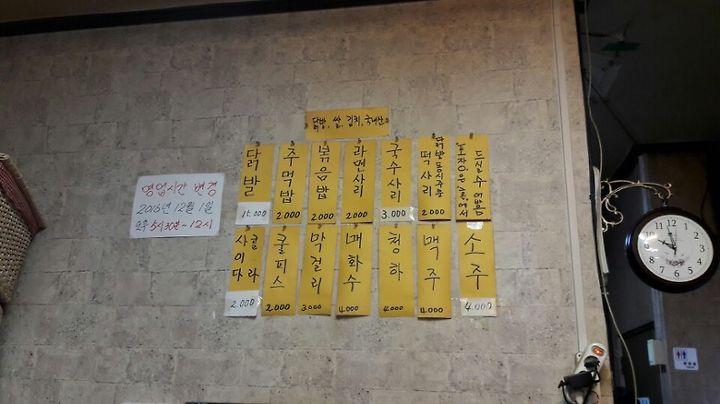 닭발, 쌀, 김치, 국내산
닭발
15.000
주먹밥
2.000
볶음밥
2.000
라면사리
2.000
국수사리
3.000
떡사리
닭발동시주문
2.000
드실수 없음
영업시간 변경
2016년 12월 1일
오후 5시30분~12시
콜라
사이다
2.000
쿨피스
2.000
막걸리
3.000
매화수
4.000
청하
4.000
맥주
4.000
소주
4.000